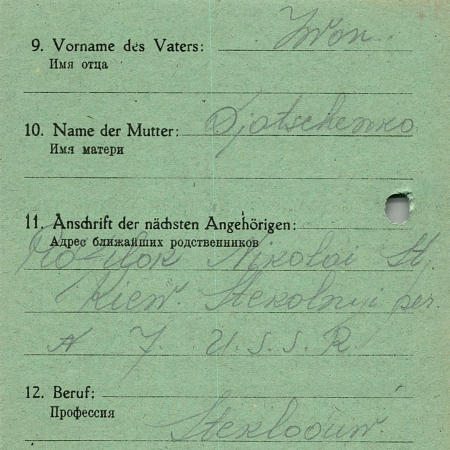 9. Vorname des Vaters: Iwon.
Имя отца
10. Name der Mutter: Djatschenko
Имя матери
11. Anschrift der nächsten Angehörigen:
Адрес ближайших родственников
Nikolai St.
Kiew. Stekolnyi per.
N 7. U.S.S.R.
12. Beruf:
Профессия